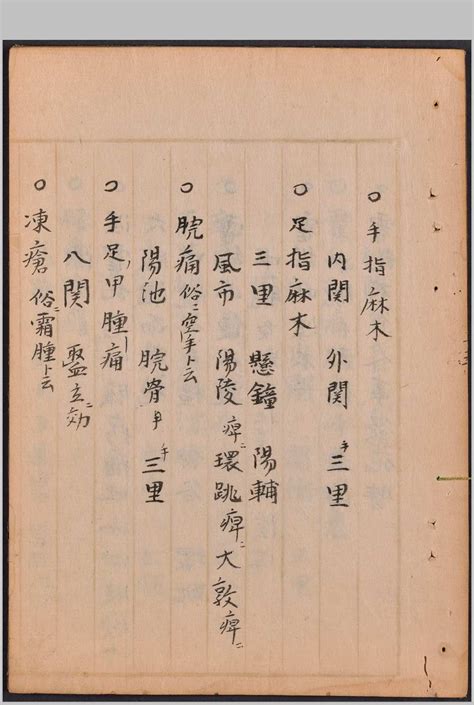 ○手指麻木
内関 外関 手三里
○足指麻木
三里 懸鐘 陽輔
風市 陽陵痺ニ環跳痺ニ大敦痺ニ
○脘痛俗ニ空手ト云
陽池 脘骨 手三里
○手足ノ甲腫痛
八関 立ニ効
○凍瘡俗ニ霜腫ト云